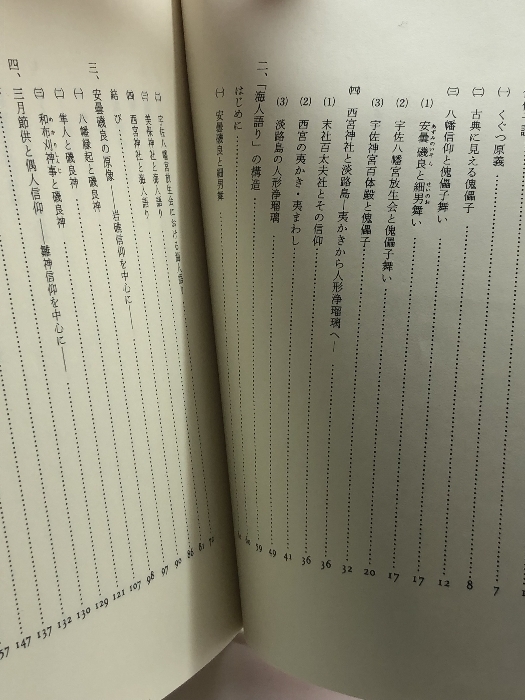 (一) くぐつ原義 7
(二) 古典に見える傀儡子 8
(三) 八幡信仰と傀儡子舞い 12
(1) 安曇磯良と細男舞い 17
(2) 宇佐八幡宮放生会と傀儡子舞い 17
(3) 宇佐神宮百体殿と傀儡子 20
(四) 西宮神社と淡路島―夷かきから人形浄瑠璃へ― 32
(1) 末社百太夫社とその信仰 36
(2) 西宮の夷かき・夷まわし 36
(3) 淡路島の人形浄瑠璃 41
二、「海人語り」の構造 49
はじめに 59
(一) 安曇磯良と細男舞
(二) 宇佐八幡宮放生会における
(三) 美保神社と海人語り
(四) 西宮神社と海人語り
結び――岩礁信仰を中心に――
三、安曇磯良の原像
(一) 八幡縁起と磯良神
(二) 隼人と磯良神
(三) 和布刈神事と磯良神
四、三月節供と偶人信仰――雛神信仰を中心に――
72
81
86
90
97
98
107
121
129
130
132
137
147
57